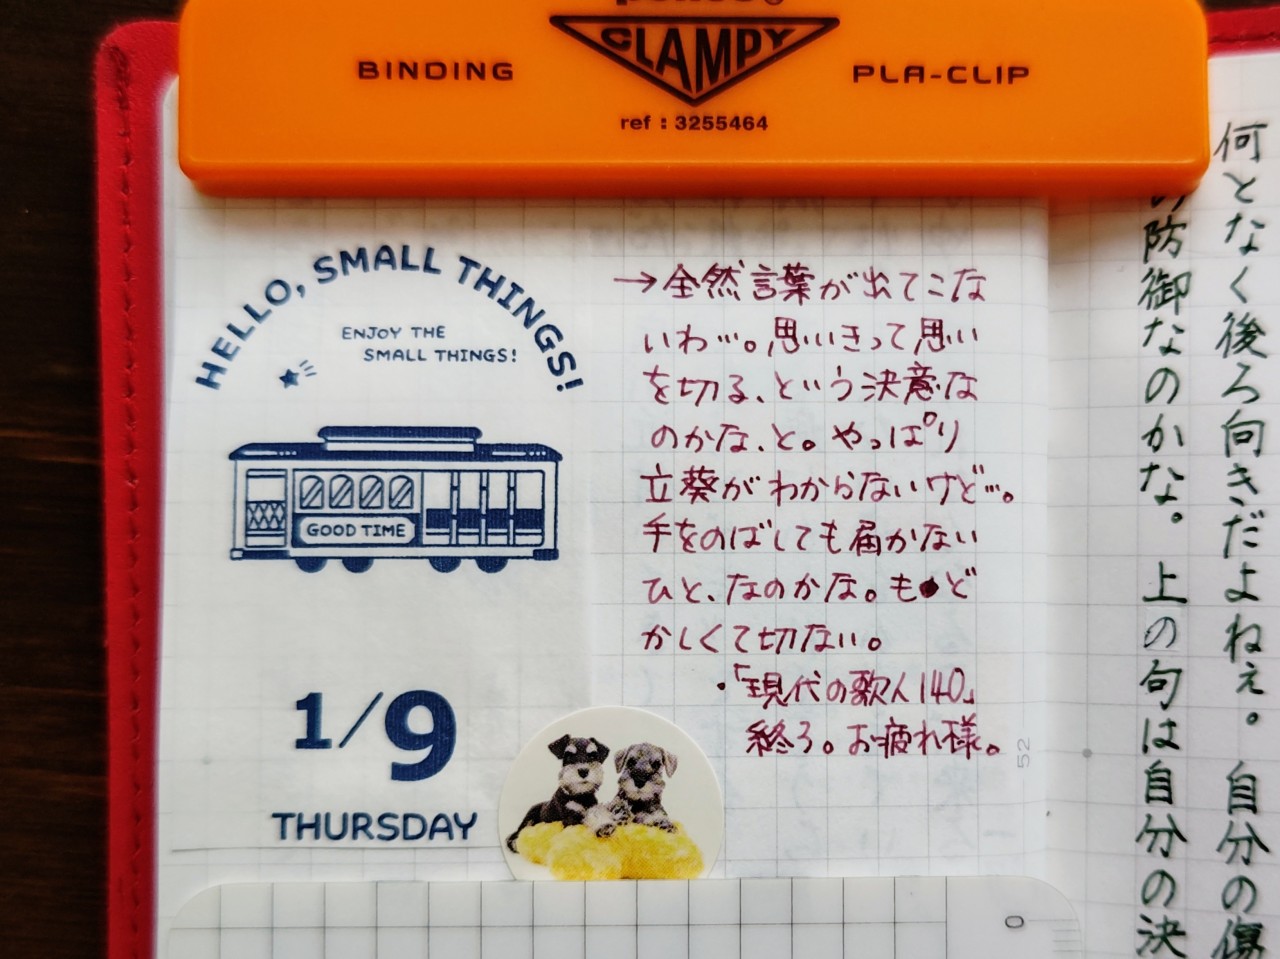 CLAMPY
BINDING
PLA-CLIP
ref : 3255464
HELLO, SMALL THINGS!
ENJOY THE
SMALL THINGS!
GOOD TIME
1/9
THURSDAY
→全然言葉が出てこな
いわ…。思いきって思い
を切る、という決意な
のかな、と。やっぱり
立葵がわからないけど…。
手をのばしても届かない
ひと、なのかな。も ど
かしくて切ない。
・「現代の歌人140」
終ろ。お疲れ様。
52
0
何となく後ろ向きだよねぇ。自分の傷
の防御なのかな。上の句は自分の決